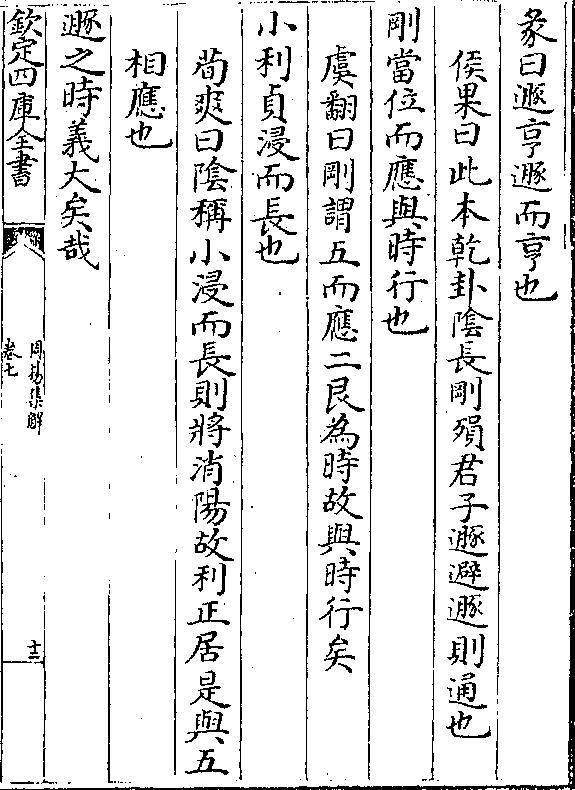 彖曰遯亨遯而亨也
侯果曰此本乾卦陰長剛殞君子遯避遯則通也
剛當位而應與時行也
虞翻曰剛謂五而應二艮為時故與時行矣
小利貞浸而長也
荀爽曰陰稱小浸而長則將消陽故利正居是與五
相應也
遯之時義大矣哉
欽定四庫全書
周易集解
卷七
十二